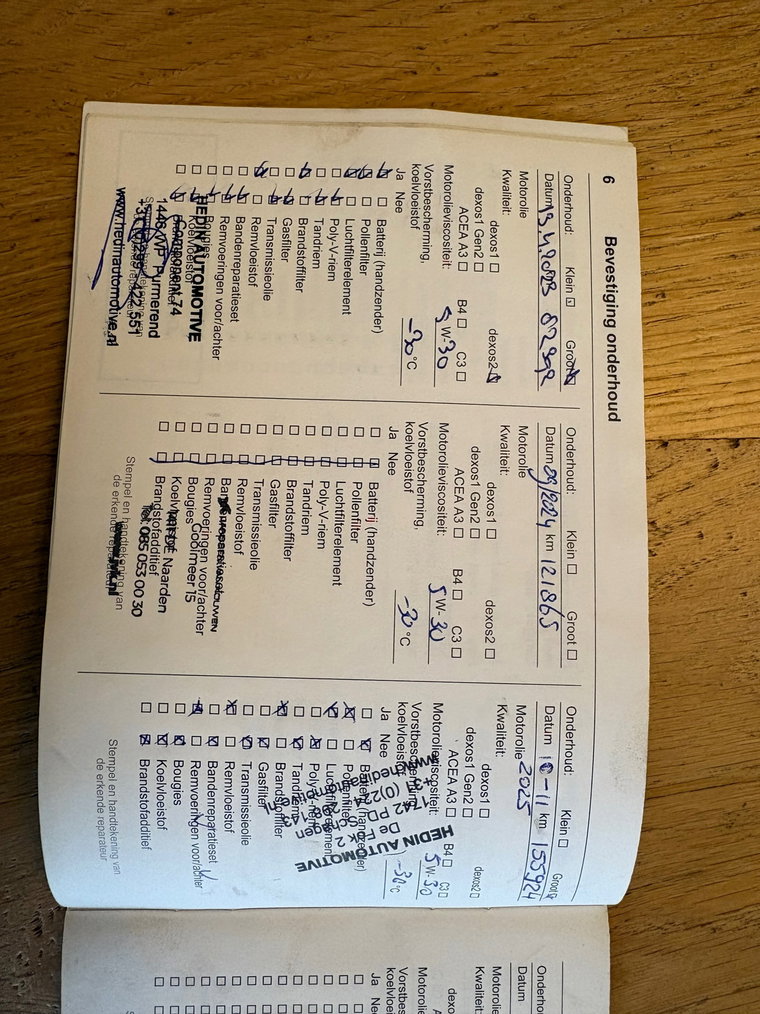 6 Bevestiging onderhoud
Onderhoud: Klein Groot
Datum km 82992
Motorolie
Kwaliteit: dexos1 dexos2
dexos1 Gen2
ACEA A3 B4 C3
Motorolieviscositeit: 5 W-30
Vorstbescherming,
koelvloeistof -30 °C
Ja Nee
Batterij (handzender)
Pollenfilter
Luchtfilterelement
Poly-V-riem
Tandriem
Brandstoffilter
Gasfilter
Transmissieolie
Remvloeistof
Bandenreparatieset
Remvoeringen voor/achter
Bougies
Koelvloeistof
HEDIN AUTOMOTIVE
1446 WP Purmerend
www.hedinautomotive.nl
Onderhoud: Klein Groot
Datum 09/2024 km 121865
Motorolie
Kwaliteit: dexos1 dexos2
dexos1 Gen2
ACEA A3 B4 C3
Motorolieviscositeit: 5 W-30
Vorstbescherming,
koelvloeistof -30 °C
Ja Nee
Batterij (handzender)
Pollenfilter
Luchtfilterelement
Poly-V-riem
Tandriem
Brandstoffilter
Gasfilter
Transmissieolie
Remvloeistof
Remvoeringen voor/achter
Bougies
Gooimeer 15
Koelvloeistof
Naarden
Brandstofadditief
Tel. 085 053 00 30
Stempel en handtekening van
de erkende reparateur
Onderhoud: Klein Groot
Datum 10-11 km 155924
Motorolie 2025
Kwaliteit: dexos1 dexos2
dexos1 Gen2
ACEA A3 B4 C3
Motorolieviscositeit: 5 W-30
Vorstbescherming,
koelvloeistof -30 °C
Ja Nee
Batterij (handzender)
Pollenfilter
Luchtfilterelement
Poly-V-riem
Tandriem
Brandstoffilter
Gasfilter
Transmissieolie
Remvloeistof
Bandenreparatieset
Remvoeringen voor/achter
Bougies
Koelvloeistof
Brandstofadditief
HEDIN AUTOMOTIVE
Stempel en handtekening van
de erkende reparateur
Datum
Motorolie
Kwaliteit:
Ja Nee